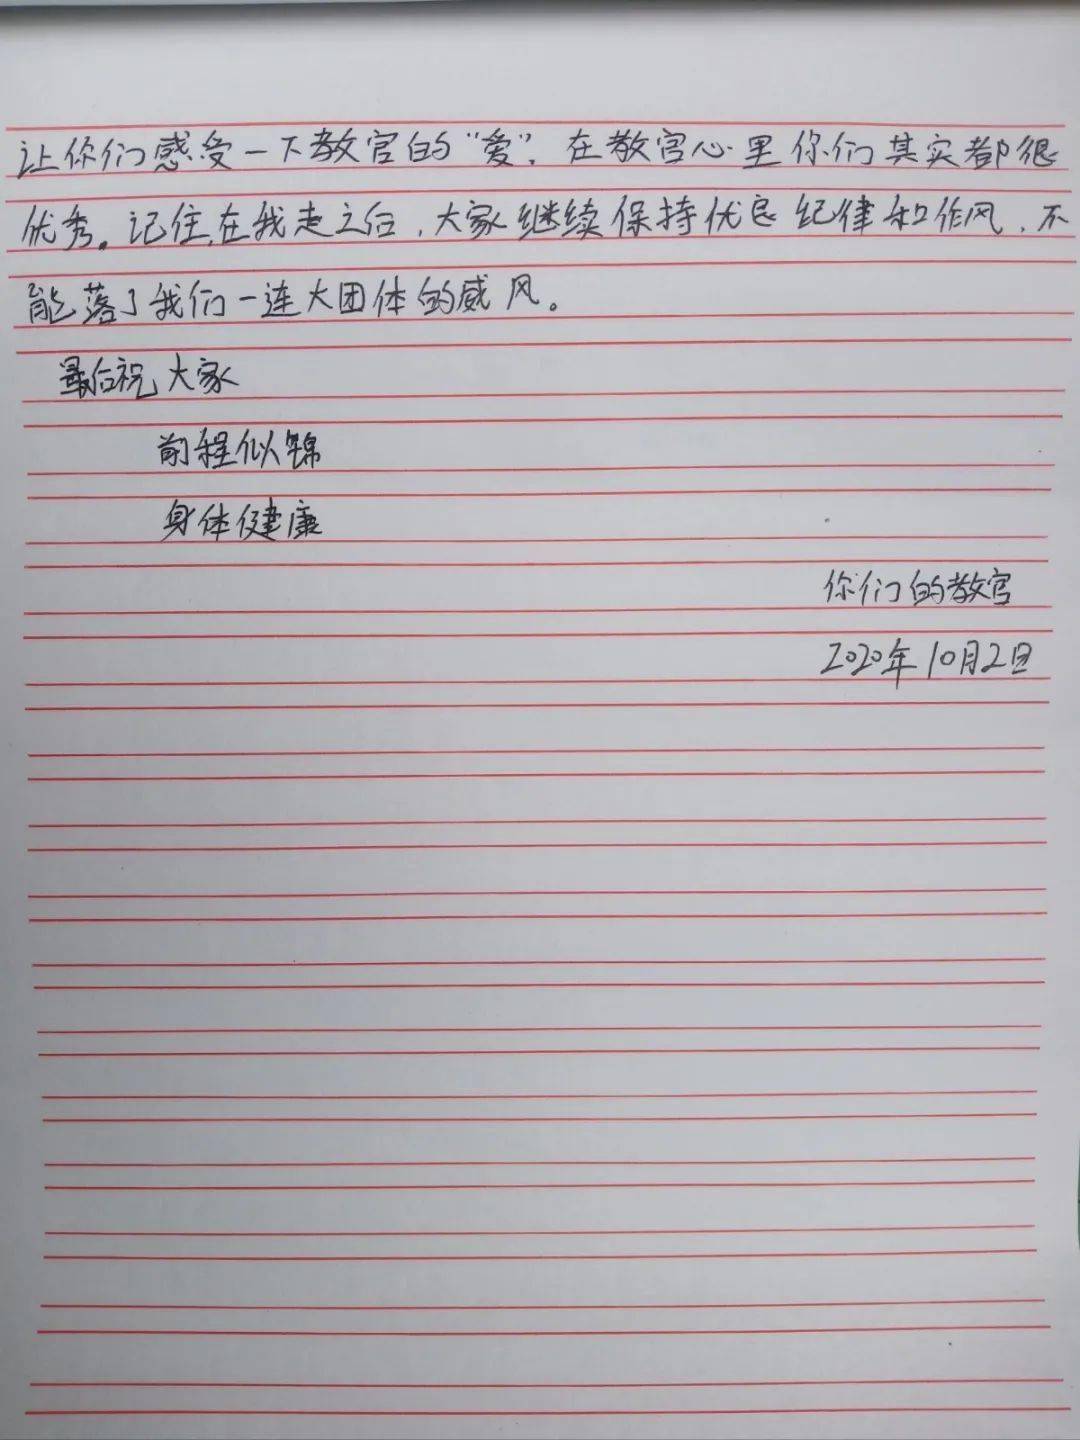 让你们感受一下教官的“爱”，在教官心里你们其实都很
优秀。记住，在我走之后，大家继续保持优良纪律和作风，不
能落了我们一连大团体的威风。
最后祝大家
前程似锦
身体健康
你们的教官
2020年10月2日